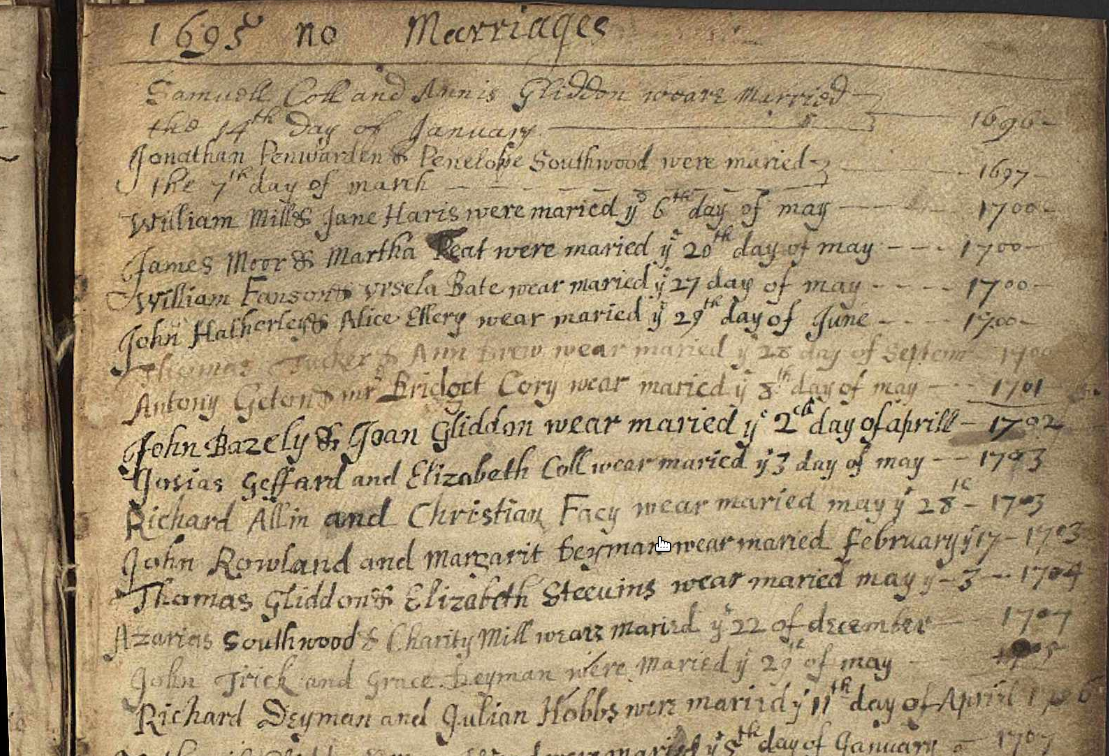 1695 no Marriages
Samuell Coll and Annis Gliddon weare Married
the 14th Day of January 1696
Jonathan Penwarden & Penelope Southwood were maried
the 7th day of march 1697
William Mill & Jane Haris were maried ye 6th day of may 1700
James Moor & Martha Peat were maried ye 20th day of may 1700
William Fanson & Ursela Bate wear maried ye 27 day of may 1700
John Hatherley & Alice Ellery wear maried ye 29th day of June 1700
Thomas Tucker & Ann Drew wear maried ye 28 day of Septem 1700
Antony Geton & mr Bridget Cory wear maried ye 8th day of may 1701
John Bazely & Joan Gliddon wear maried ye 2th day of aprill 1702
Josias Geffard and Elizabeth Coll wear maried ye 3 day of may 1703
Richard Allin and Christian Facy wear maried may ye 28th 1703
John Rowland and Margarit Deyman wear maried february ye 17 1703
Thomas Gliddon & Elizabeth Steevins wear maried may ye 3 1704
Azarias Southwood & Charity Mill weare maried ye 22 of december 1707
John Trick and Grace Deyman were Maried ye 29th of may
Richard Deyman and Julian Hobbs were married ye 11th day of April
were married ye 5th day of January 1707